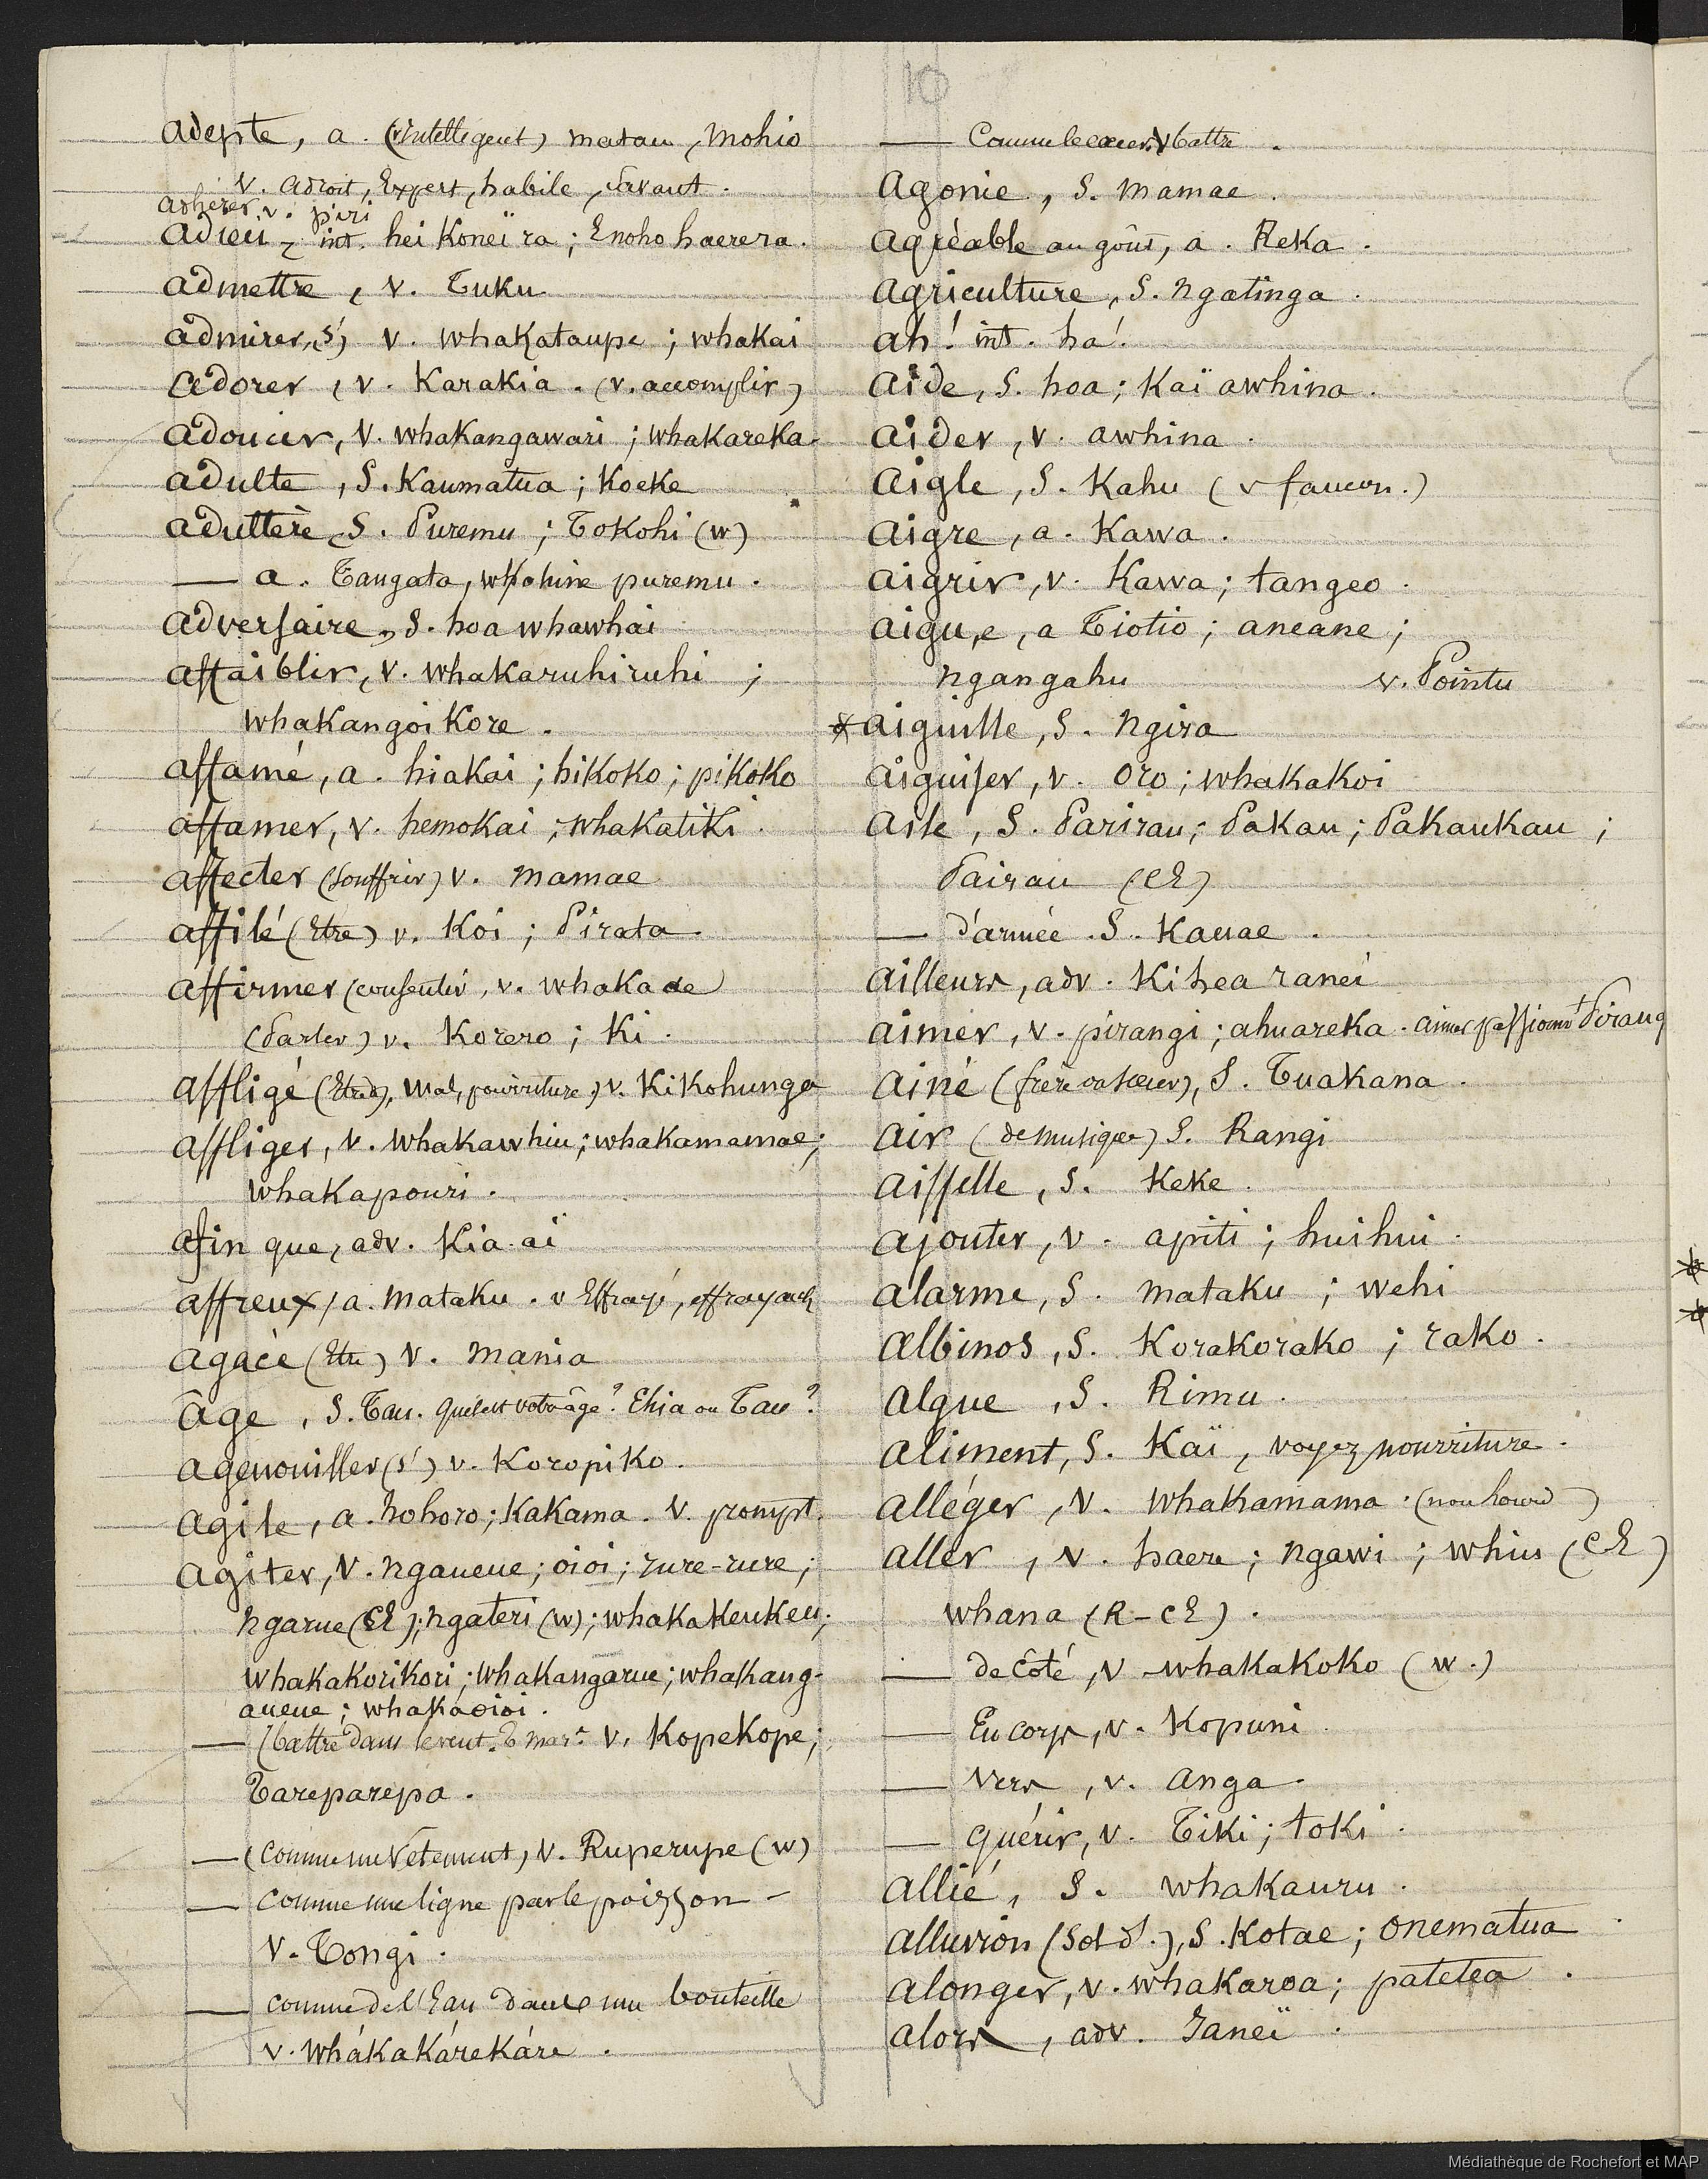 10
adepte, a. (Intelligent) matau, mohio
v. adroit, Expert, habile, savant.
adhérer, v. piri
adieu, int. hei Koneï ra; Enoho haerera.
admettre, v. Tuku
admirer, (s') v. whakataupe; whakai
adorer, v. Karakia. (v. accomplir)
adoucir, v. whakangawari; whakareka
adulte, S. Kaumatua; Koeke
adultère, S. Puremu; Tokohi (w)
— a. Tangata, wahine puremu.
adversaire, S. hoa whawhai
affaiblir, v. whakaruhiruhi;
whakangoikore.
affamé, a. hiakai; hikoko; pikoko
affamer, v. hemokai; whakatiki.
affecter (souffrir) v. mamae
affilé (Etre) v. Koi; Pirata.
affirmer (consentir, v. whakaae
(Parler) v. Korero; Ki.
affligé (Etre), mal, pourriture) v. Kikohunga
affliger, v. whakawhiu; whakamamae;
whakapouri.
afin que, adv. Kia-aï
affreux, a. mataku. v Effrayé, effrayant
agacé (Etre) v. mania
âge, S. Tau. quel est votre âge? Ehia ou Tau?
agenouiller (s') v. Koropiko.
agile, a. hohoro; Kakama. v. prompt.
agiter, v. ngaueue; oioi; rure-rure;
ngarue (CE); ngateri (w); whakakeukeu;
whakakorikori; whakangarue; whakang-
aueue; whakaoioi.
— (battre dans le vent. v. Kopekope;
Tareparepa.
— (comme un vêtement, v. Ruperupe (w)
— comme une ligne par le poisson –
v. Tongi.
— comme de l'Eau dans une bouteille
v. whákakárekáre.
— Comme le cœur. v battre.
Agonie, S. mamae.
agréable au goût, a. Reka.
agriculture, S. ngatinga.
ah! int. ha!
aide, S. hoa; Kaï awhina.
aider, v. awhina.
aigle, S. Kahu (v faucon.)
aigre, a. Kawa.
aigrir, v. Kawa; tangeo.
aigu,e, a Tiotio; aneane;
ngangahu v. Pointu
* aiguille, S. ngira
aiguiser, v. Oro; whakakoi
Aile, S. Parirau; Pakau; Pakaukau;
Pairau (CE)
— d'armée. S. Kauae.
ailleurs, adv. Ki hea raneï
aimer, v. pirangi; ahuareka.
ainé (frère ou sœur), S. Tuakana.
air (de musique) S. Rangi
aisselle, S. Keke.
ajouter, v. apiti; huihui.
alarme, S. mataku; wehi
albinos, S. Korakorako; rako.
algue, S. Rimu.
aliment, S. Kaï, voyez nourriture.
alléger, v. whakamama. (non lourd)
aller, v. haere; ngawi; whiu (CE)
whana (R–CE).
— de côté, v whakakoko (w.)
— En corps, v. Kopuni.
— vers, v. anga.
— quérir, v. Tiki; toki.
allié, S. whakauru.
alluvion (sol d'.), S. Kotae; onematua.
alonger, v. whakaroa; patetea.
alors, adv. Raneï.
Médiathèque de Rochefort et MAP